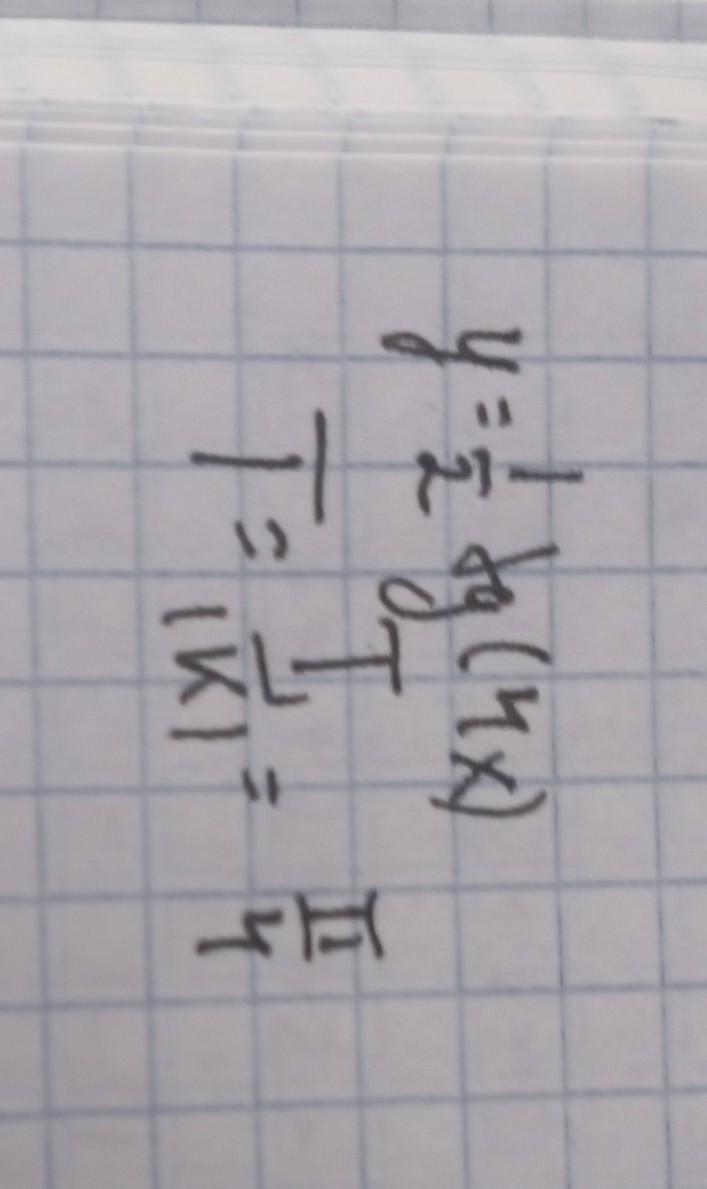 y = 1/2 tg(4x)
T = T/|K| = π/4